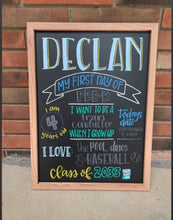 DECLAN
MY FIRST DAY OF
I am
4
years old
I WANT TO BE A
train
conductor
WHEN I GROW UP
todays
date
I LOVE: the POOL, dinos
& BASEBALL
class of 2033